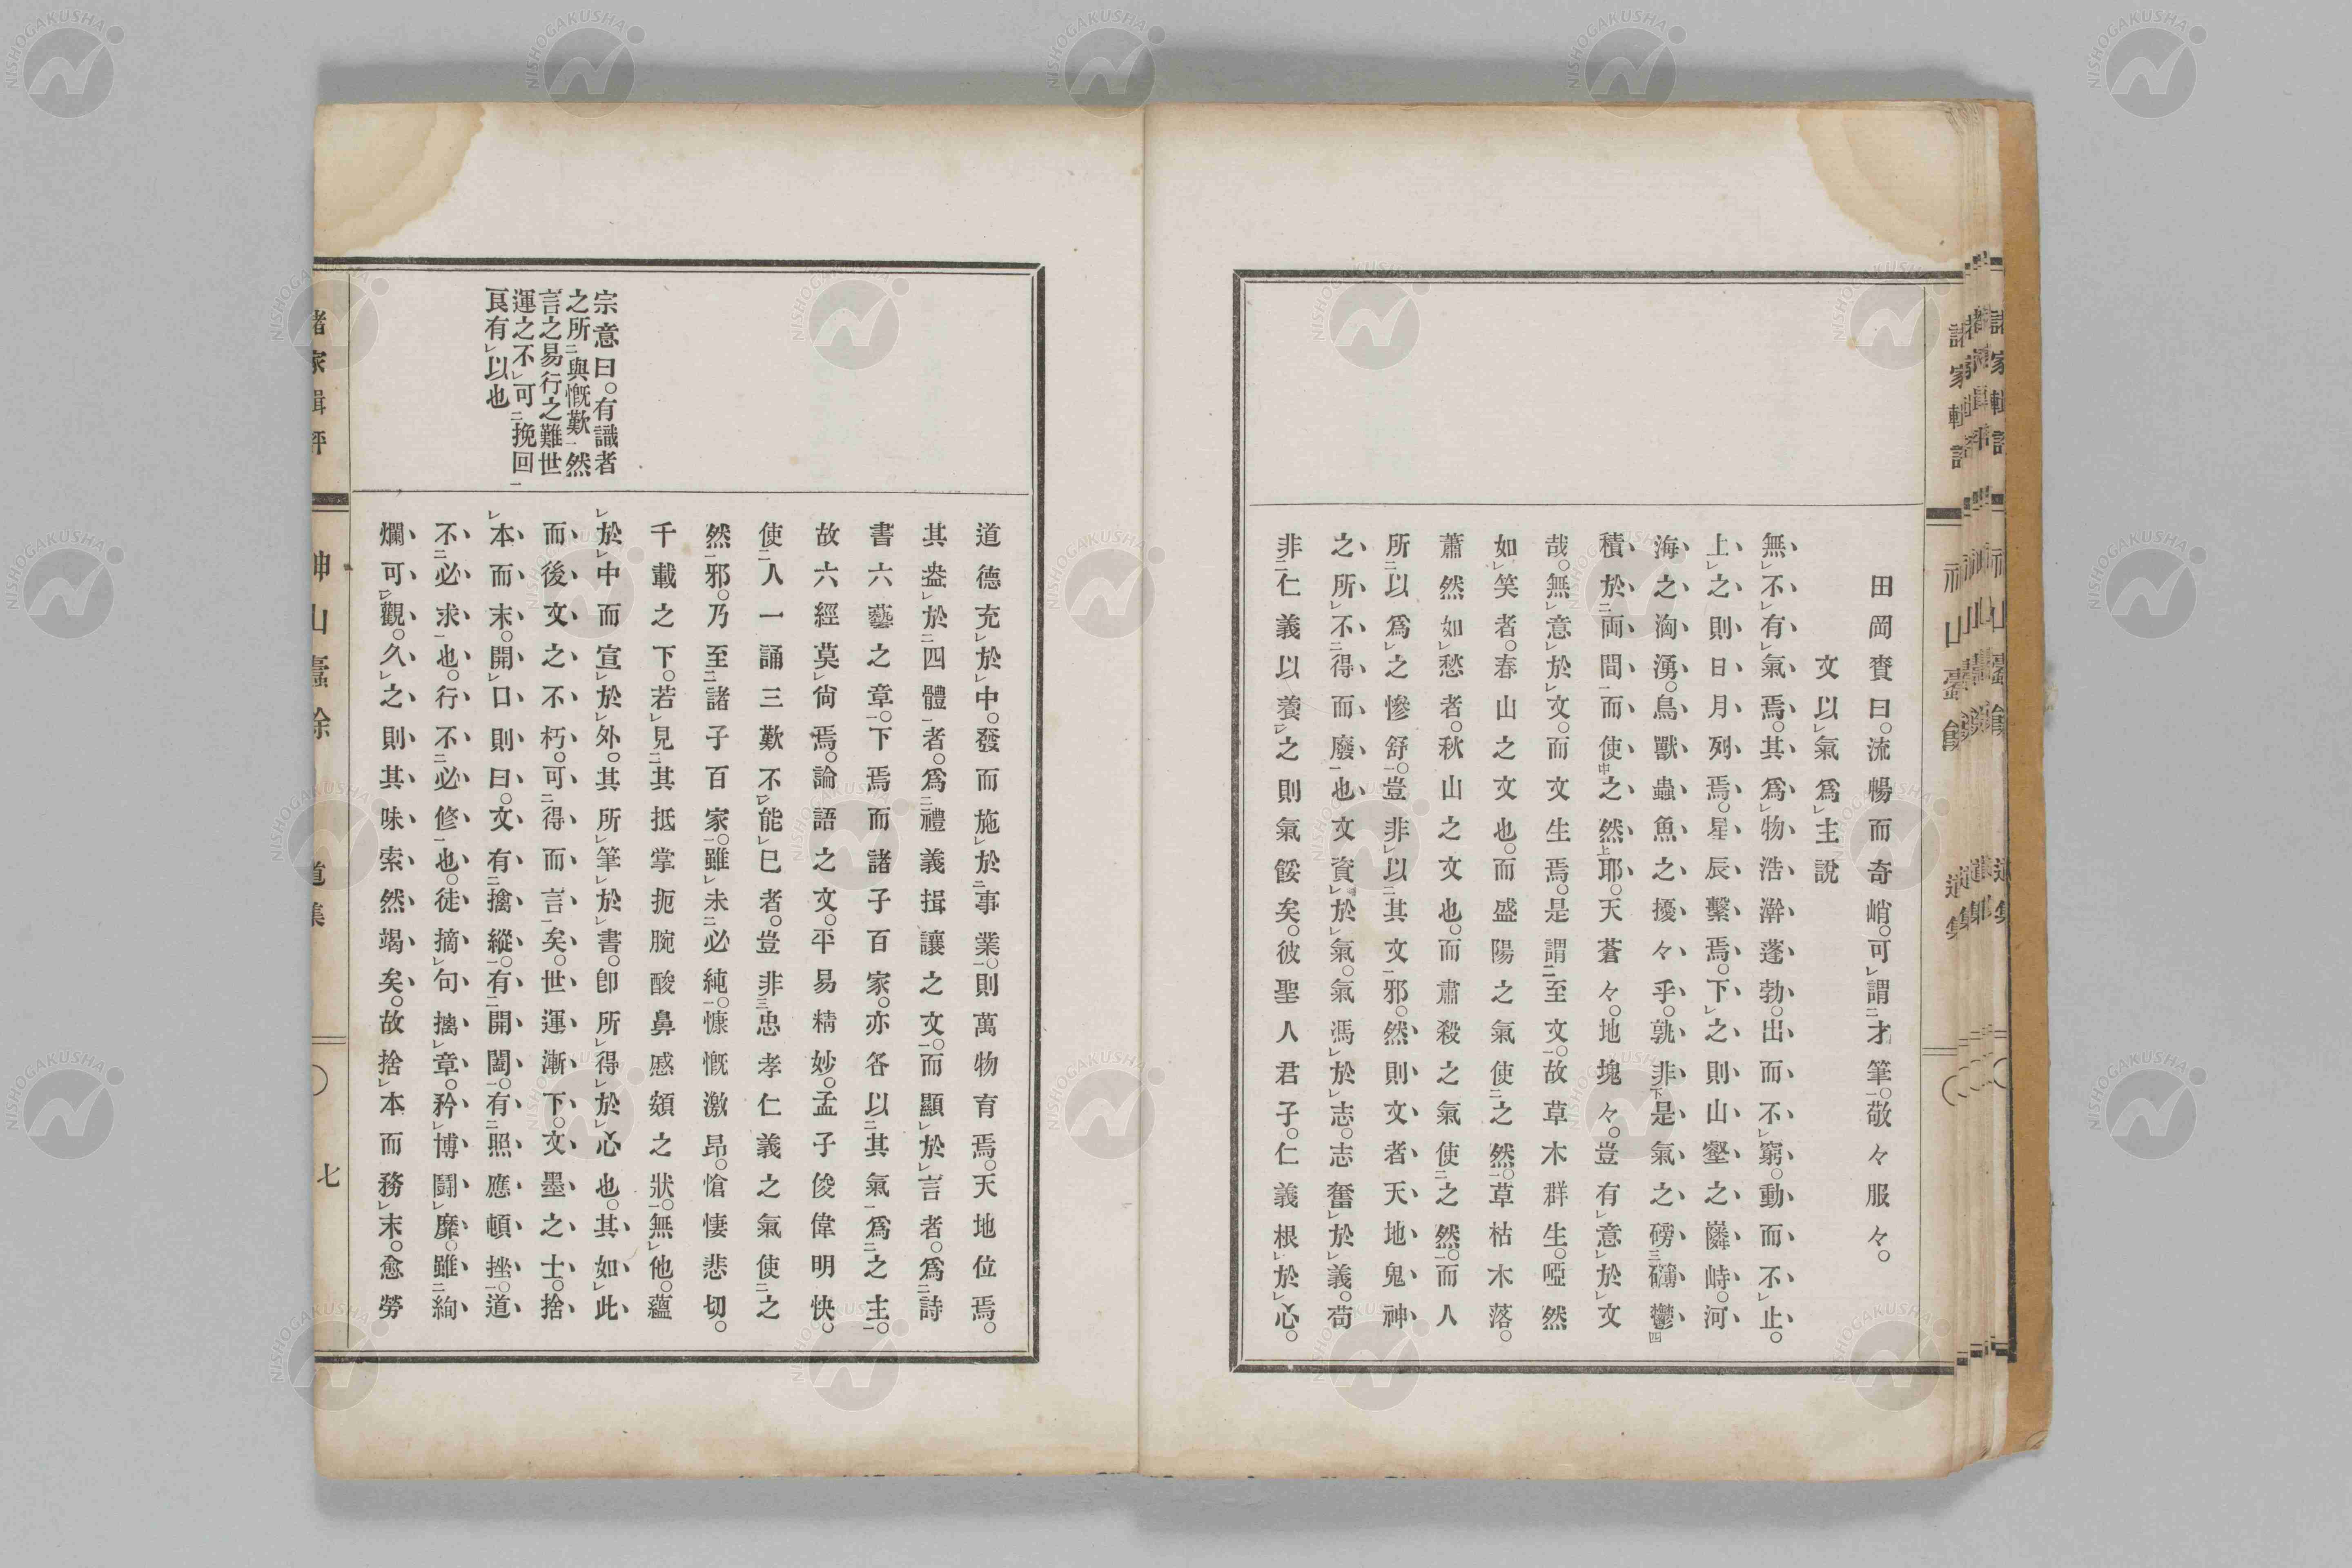 田岡賚曰。流暢而奇峭。可謂才筆。敬々服々。
文以氣爲主說
無不有氣焉。其爲物浩澣蓬勃。出而不窮。動而不止。
上之則日月列焉。星辰繫焉。下之則山壑之嶙峙。河
海之洶湧。鳥獸蟲魚之擾々乎。孰非是氣之磅礴鬱
積於兩間而使之然耶。天蒼々。地塊々。豈有意於文
哉。無意於文。而文生焉。是謂至文。故草木群生。啞然
如笑者。春山之文也。而盛陽之氣使之然。草枯木落。
蕭然如愁者。秋山之文也。而肅殺之氣使之然。而人
所以爲之慘舒。豈非以其文邪。然則文者天地鬼神
之所不得而廢也。文資於氣。氣馮於志。志奮於義。苟
非仁義以養之則氣餒矣。彼聖人君子。仁義根於心。
道德充於中。發而施於事業。則萬物育焉。天地位焉。
其盎於四體者。爲禮義揖讓之文。而顯於言者。爲詩
書六藝之章。下焉而諸子百家。亦各以其氣爲之主。
故六經莫尙焉。論語之文。平易精妙。孟子俊偉明快。
使人一誦三歎不能已者。豈非忠孝仁義之氣使之
然邪。乃至諸子百家。雖未必純。慷慨激昂。愴悽悲切。
千載之下。若見其抵掌扼腕酸鼻慼頞之狀。無他。蘊
於中而宣於外。其所筆於書。卽所得於心也。其如此
而後文之不朽。可得而言矣。世運漸下。文墨之士。捨
本而末。開口則曰。文有擒縱。有開闔。有照應頓挫。道
不必求也。行不必修也。徒摘句擒章。矜博鬪靡。雖絢
爛可觀。久之則其味索然竭矣。故捨本而務末。愈勞
宗意曰。有識者
之所與慨歎然
言之易行之難世
運之不可挽回
良有以也
七